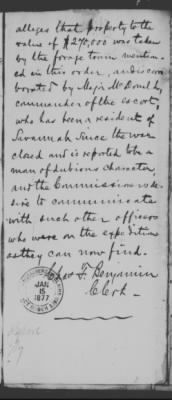 alleges that property to the
value of $270,000 was taken
by the forage train mention-
ed in this order, and is corro-
borated by Maj.
commander of the escort,
who has been a resident of
Savannah since the war
closed and is reported to be a
man of dubious character,
and the Commissioners de-
sire to communicate
with such other officers
who were on the expedition
as they can now find.
F. Benjamin
Clerk.
JAN
15
1877